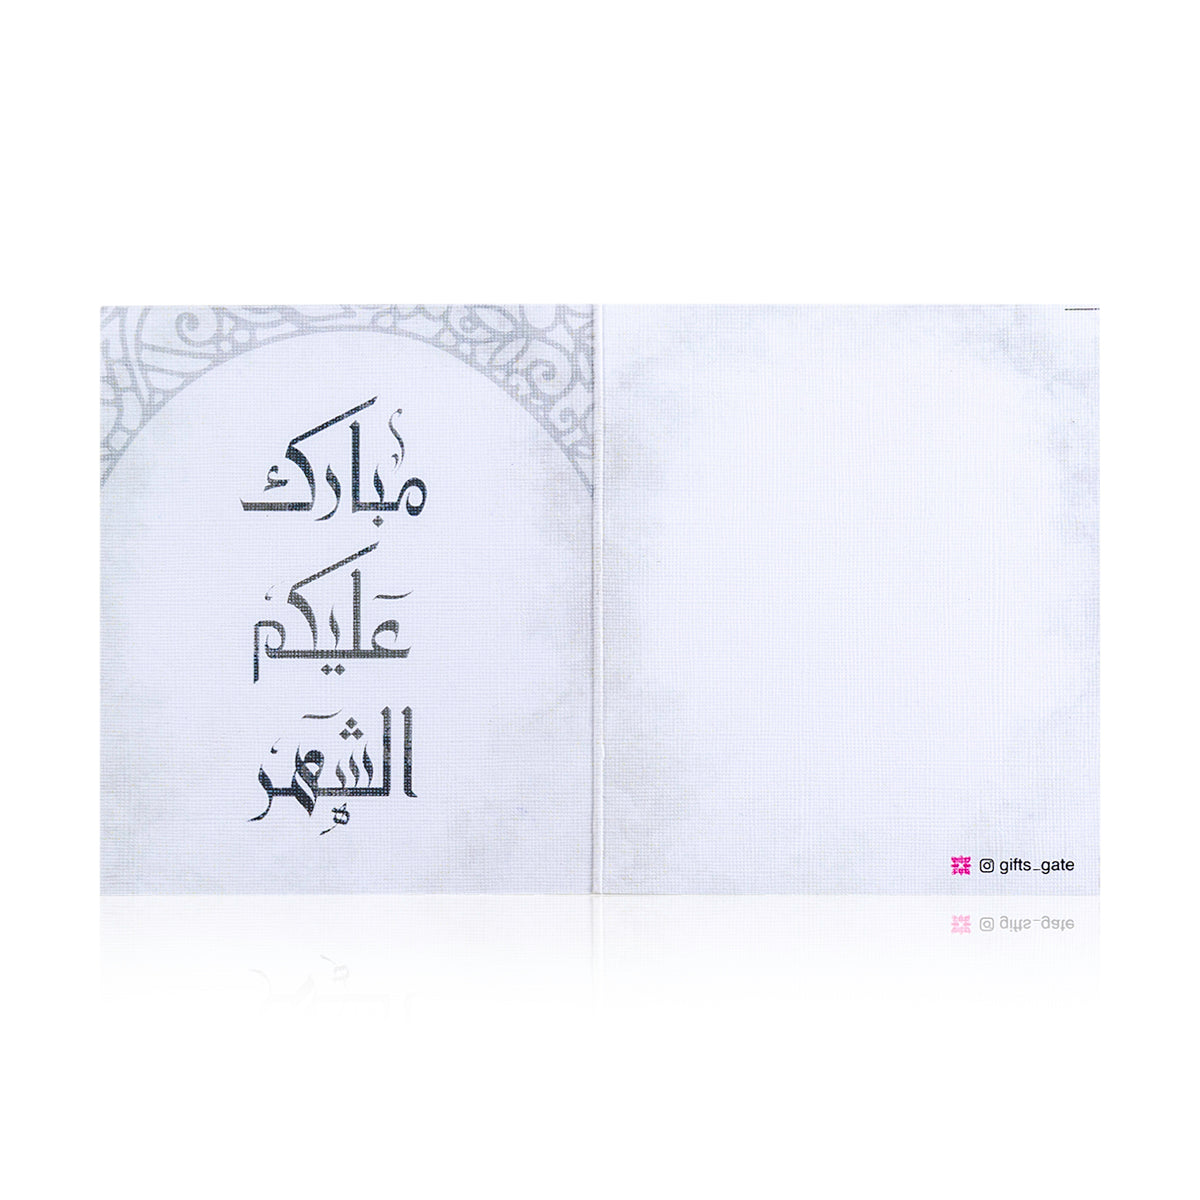 مبارك
عليكم
الشهر
gifts_gate